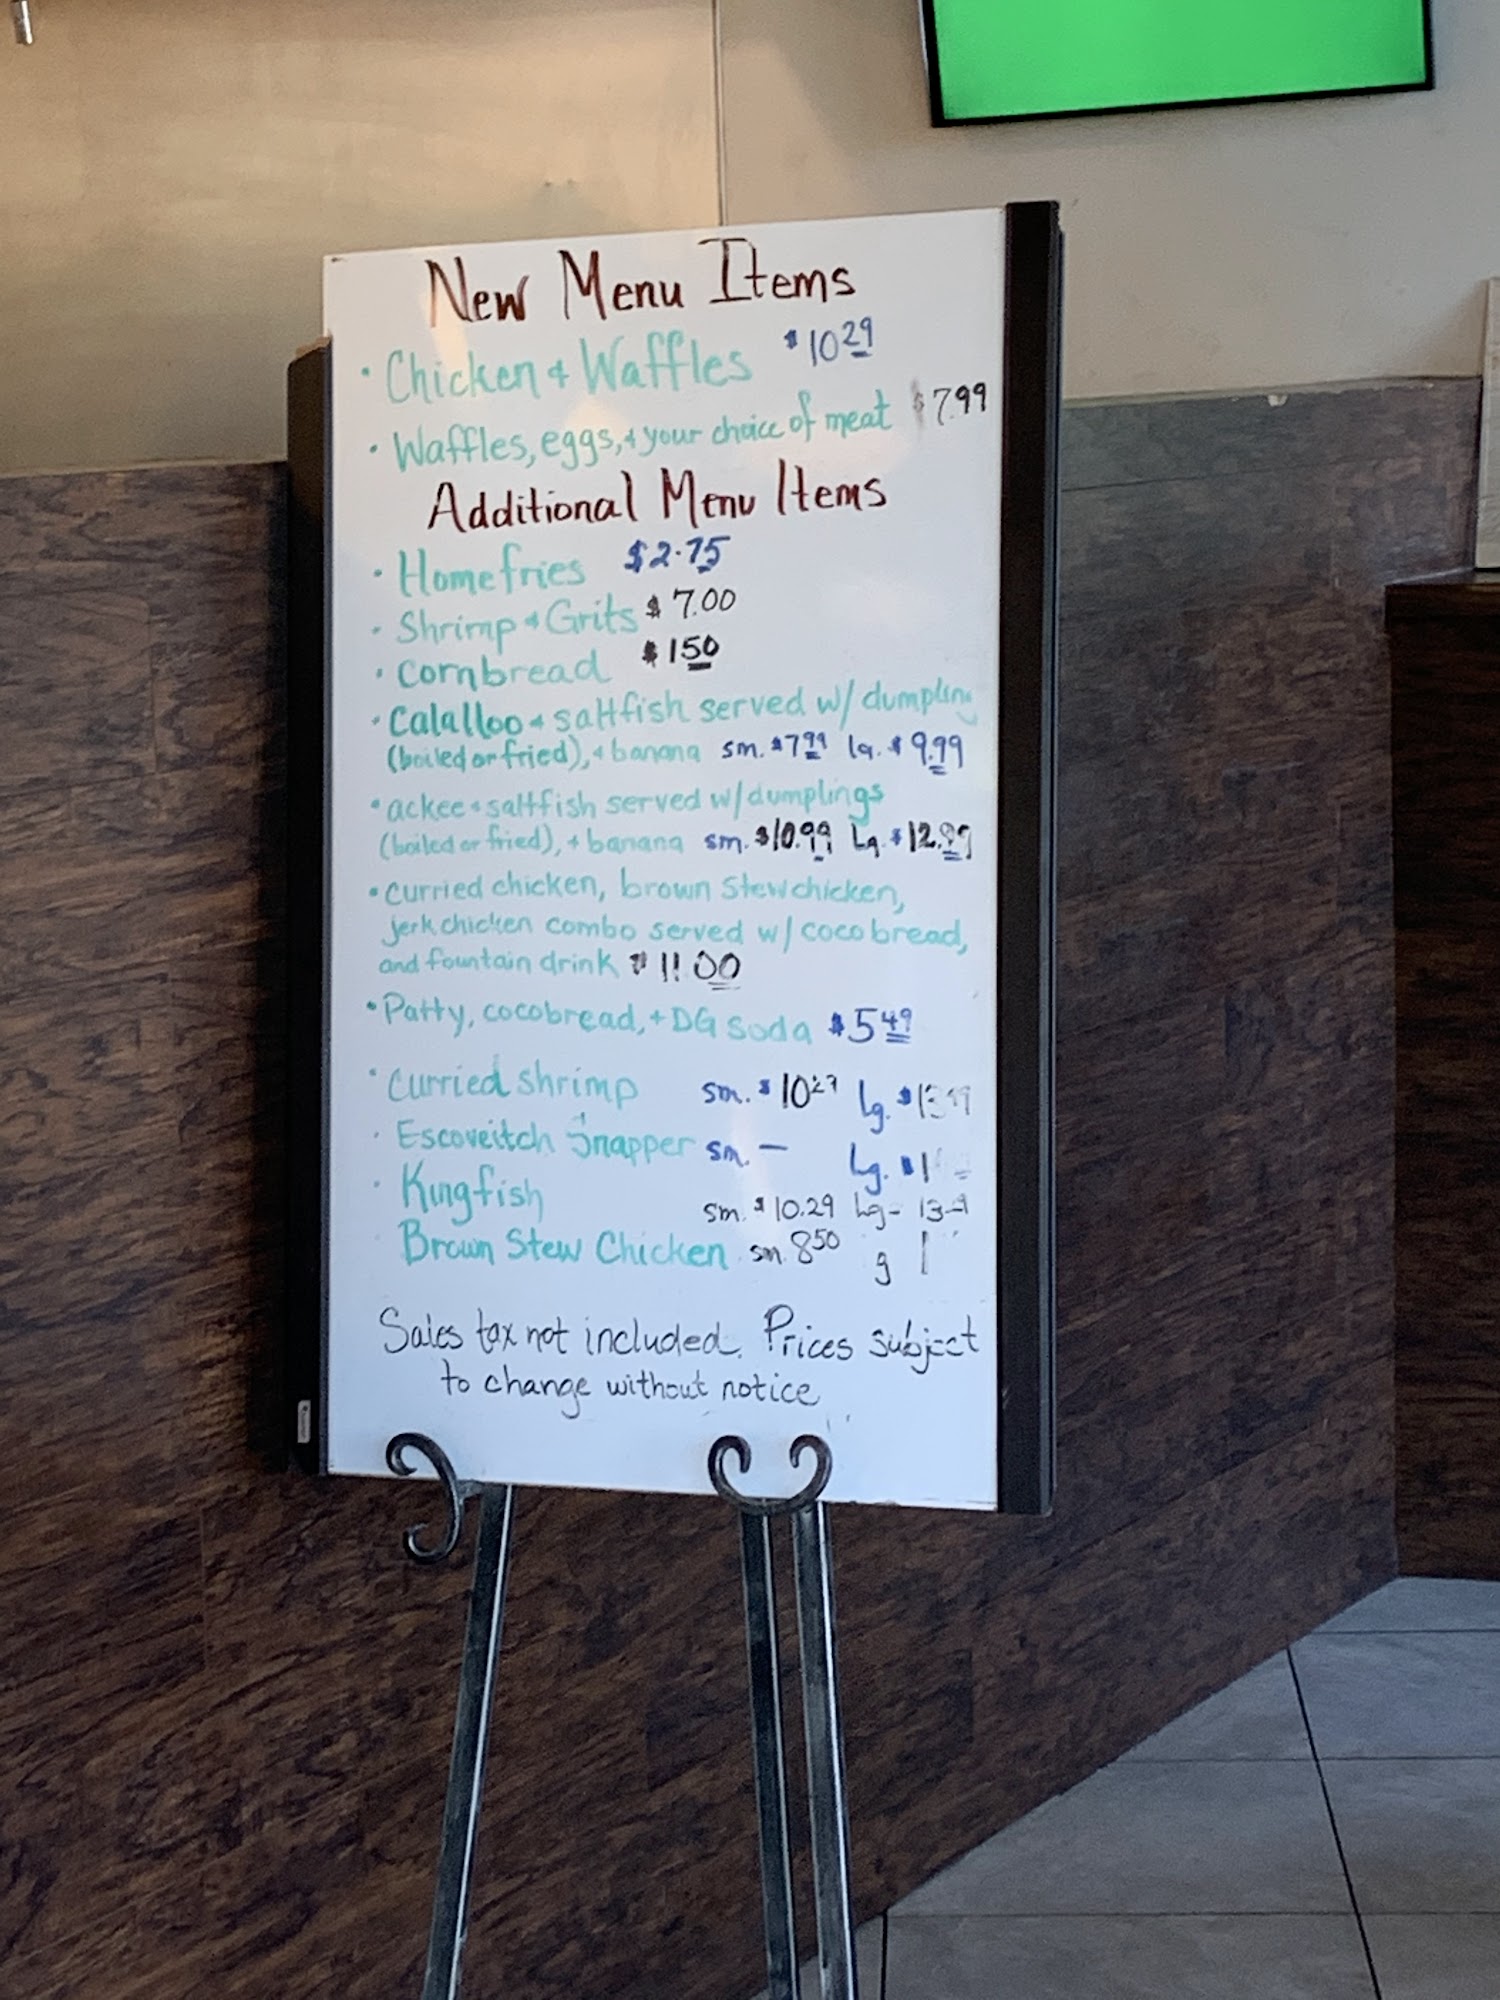 New Menu Items
• Chicken + Waffles $10 29
• Waffles, eggs, + your choice of meat $7.99
Additional Menu Items
• Homefries $2.75
• Shrimp + Grits $7.00
• Cornbread $1 50
• Calalloo + saltfish served w/ dumpling
(boiled or fried), + banana sm. $7 99 lg. $9.99
• ackee + saltfish served w/ dumplings
(boiled or fried), + banana sm. $10.99 Lg. $12.99
• curried chicken, brown stew chicken,
jerk chicken combo served w/ coco bread,
and fountain drink $11.00
• Patty, cocobread, + DG Soda $5 49
• Curried shrimp sm. $10 Lg.
• Escoveitch Snapper sm. — Lg.
• Kingfish sm. $10.29 Lg-
Brown Stew Chicken sm. 8 50
Sales tax not included. Prices subject
to change without notice